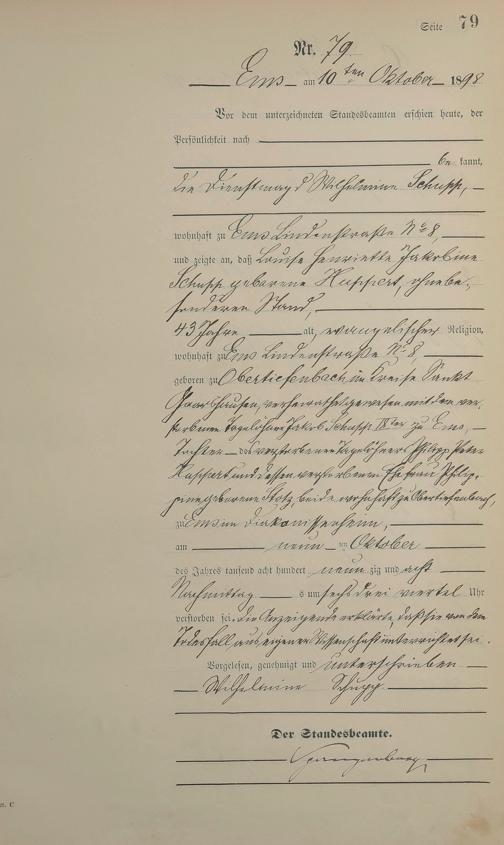 Seite 79
Nr. 79
Ems am 10 ten Oktober 1898
Vor dem unterzeichneten Standesbeamten erschien heute, der
Persönlichkeit nach
be kannt,
die Dienstmagd Wilhelmine Schupp,
wohnhaft zu Ems Lindenstraße No 8,
und zeigte an, daß Louise Henriette Jakobine
Schupp geborene Huppert, ohne be-
sonderen Stand,
43 Jahre alt, evangelischer Religion,
wohnhaft zu Ems Lindenstraße No 8,
geboren zu Obertiefenbach im Kreise Sankt
Goarshausen, verheirathet gewesen mit dem ver-
storbenen Tagelöhner Jakob Schupp zu Ems,
Tochter des verstorbenen Tagelöhners Philipp Peter
Huppert und dessen verstorbenen Ehefrau Philip-
pine geborene Stotz, beide wohnhaft zu Obertiefenbach,
zu Ems im Diakonissenheim,
am neun ten Oktober
des Jahres tausend acht hundert neun zig und acht
Nachmittag s um sechs drei viertel Uhr
verstorben sei. die Anzeigende erklärte, daß sie von dem
Todesfall aus eigener Wissenschaft unterrichtet sei.
Vorgelesen, genehmigt und unterschrieben
Wilhelmine Schupp
Der Standesbeamte.